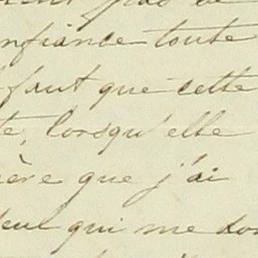 pas de
nfiance toute
faut que cette
te, lorsqu'elle
ère que j'ai
qui me don